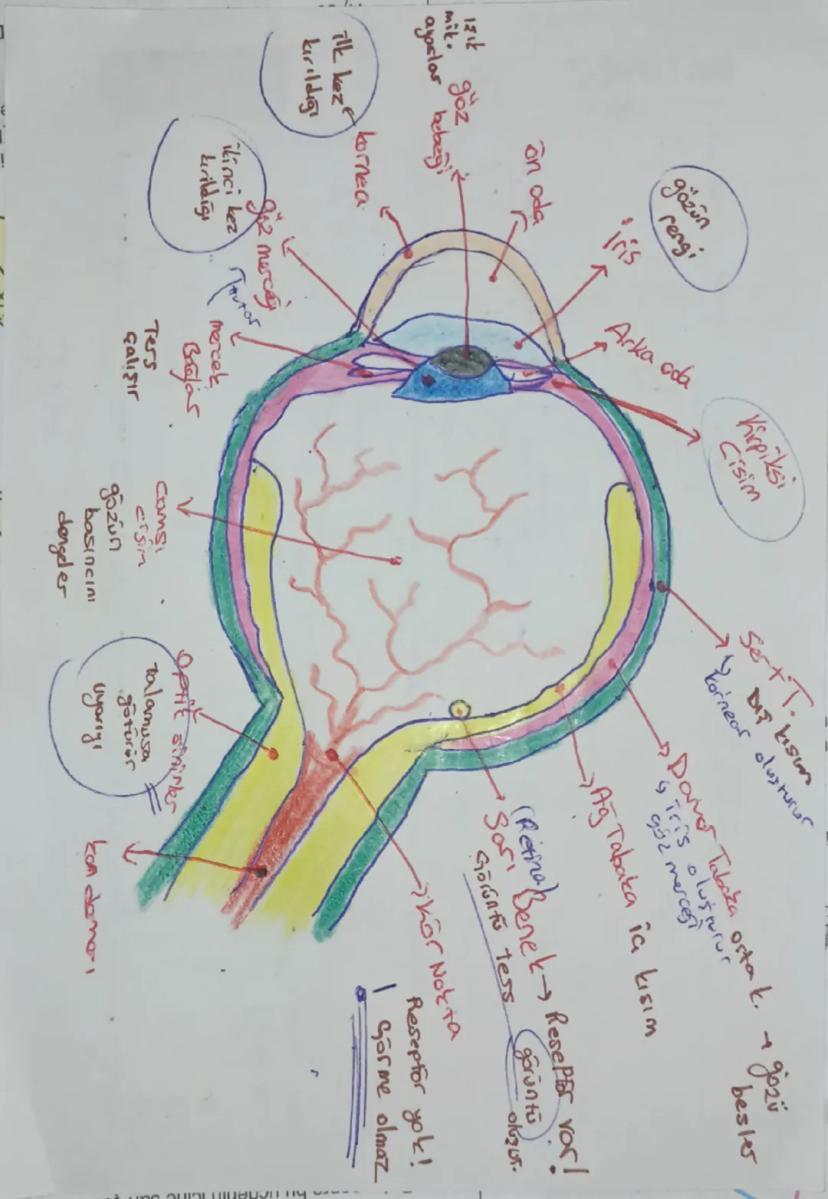 ilk kez
kırıldığı
kornea
Işık
mik.
ayarlar
göz
bebeği
ön oda
gözün
rengi
iris
ikinci kez
kırıldığı
göz merceği
Tutar
mercek
Bağları
Ters
çalışır
Arka oda
Kirpiksi
Cisim
camsı
cisim
gözün
basıncını
dengeler
Sert T.
Dış kısım
↳ korneayı oluşturur
Damar Tabaka orta k. → gözü
besler
↳ iris oluşturur
göz merceği
Ağ Tabaka iç kısım
(Retina)
Sarı Benek → Reseptör var!
Görüntü ters görüntü oluşur.
Optik sinirler
talamusa
götürür
uyarıyı
kan damarı
Kör Nokta
Reseptör yok!
Görme olmaz